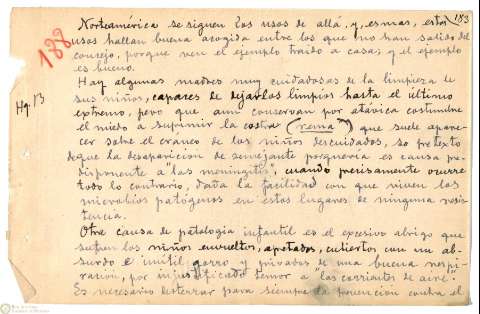 183
188
Hg. 13
Norteamérica se siguen los usos de allá, y, es mas, estos
usos hallan buena acogida entre los que no han salido del
concejo, porque ven el ejemplo traido a casa, y el ejemplo
es bueno.
Hay algunas madres muy cuidadosas de la limpieza de
sus niños, capaces de dejarlos limpios hasta el último
extremo, pero que aun conservan por atávica costumbre
el miedo a suprimir la costra (rema) que suele apare-
cer sobre el craneo de los niños descuidados, so pretexto
de que la desaparición de semejante porquería es causa pre-
disponente a las meningitis, cuando precisamente ocurre
todo lo contrario, dada la facilidad con que viven los
microbios patógenos en estos lugares de ninguna resis-
tencia.
Otra causa de patología infantil es el excesivo abrigo que
sufren los niños envueltos, apretados, cubiertos con un ab-
surdo e inútil gorro y privados de una buena respi-
ración, por injustificado temor a "las corrientes de aire".
Es necesario desterrar para siempre la prevención contra el